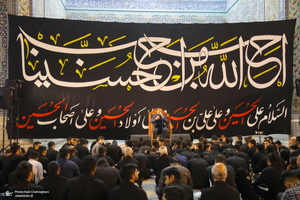 احب الله من احب حسینا
السلام علی الحسین و علی علی بن الحسین و علی اولاد الحسین و علی اصحاب الحسین